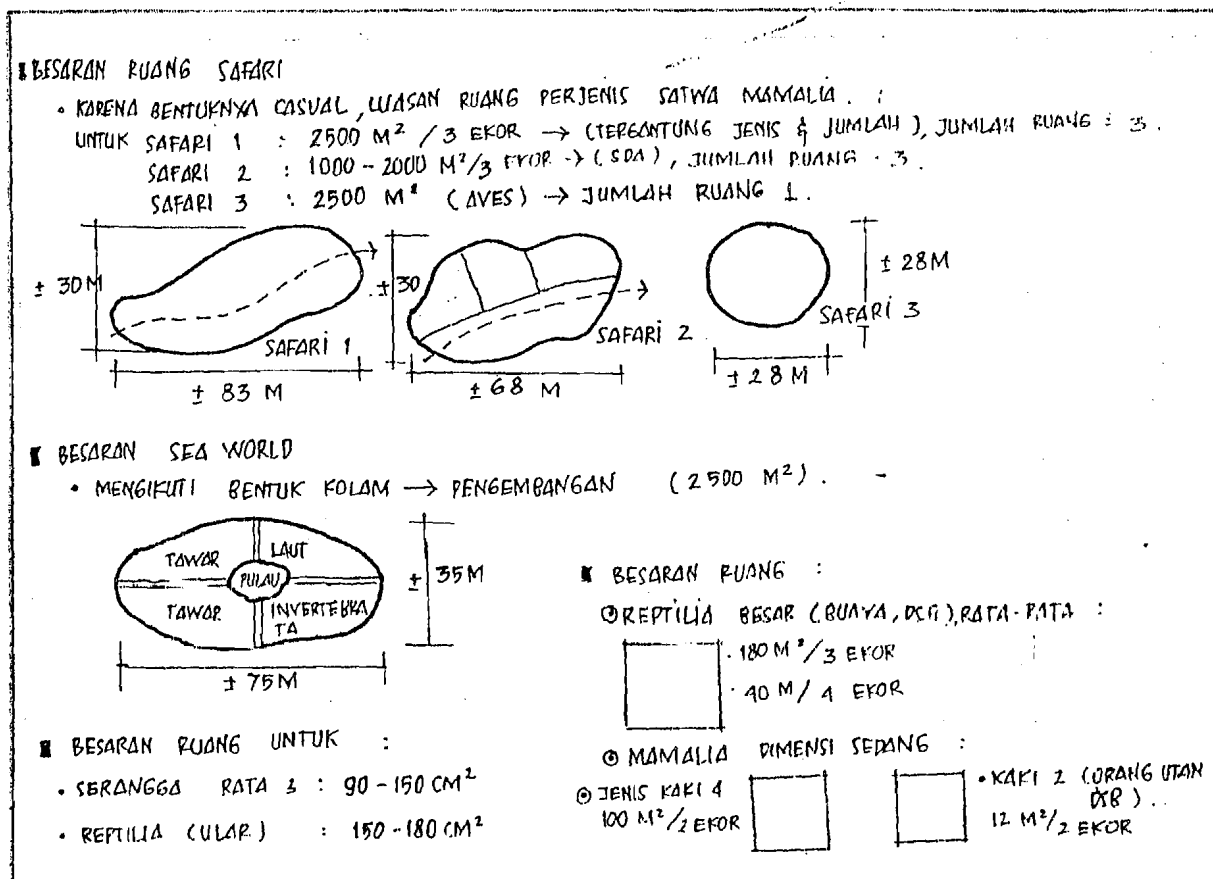 BESARAN RUANG SAFARI
• KARENA BENTUKNYA CASUAL, LUASAN RUANG PERJENIS SATWA MAMALIA. :
UNTUK SAFARI 1 : 2500 M² / 3 EKOR → (TERGANTUNG JENIS & JUMLAH), JUMLAH RUANG : 3.
SAFARI 2 : 1000 - 2000 M²/3 EKOR → (SDA), JUMLAH RUANG : 3.
SAFARI 3 : 2500 M² (AVES) → JUMLAH RUANG 1.
± 30 M
SAFARI 1
± 83 M
± 30
SAFARI 2
± 68 M
± 28 M
SAFARI 3
± 28 M
BESARAN SEA WORLD
• MENGIKUTI BENTUK KOLAM → PENGEMBANGAN (2500 M²). -
TAWAR
LAUT
PULAU
TAWAR
INVERTEBRA
TA
± 35 M
± 75 M
BESARAN RUANG UNTUK :
• SERANGGA RATA 3 : 90 - 150 CM²
• REPTILIA (ULAR) : 150 - 180 CM²
BESARAN RUANG :
REPTILIA BESAR (BUAYA, DSB), RATA-RATA :
• 180 M²/3 EKOR
• 40 M/ 4 EKOR
MAMALIA DIMENSI SEDANG :
JENIS KAKI 4
100 M²/2 EKOR
• KAKI 2 (ORANG UTAN
DSB)..
12 M²/2 EKOR